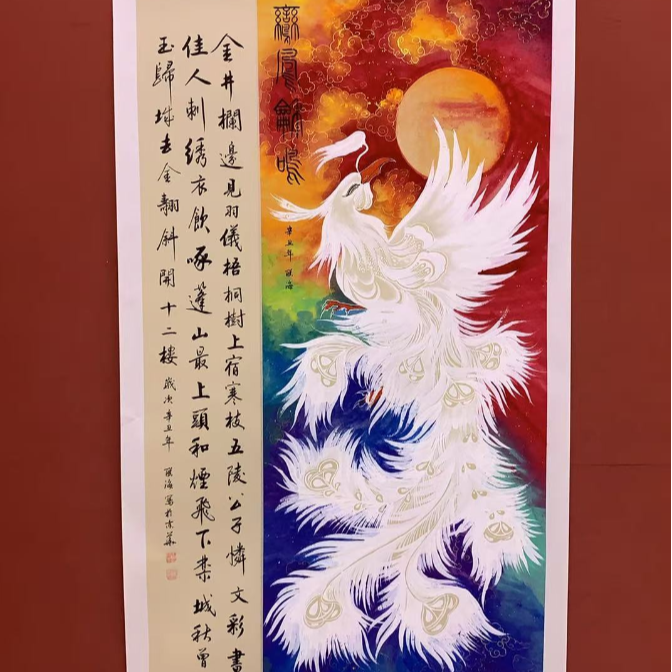 鸞鳳龢鳴
辛丑年
金井攔邊見羽儀梧桐樹上宿寒枝五陵公子憐文彩畫
佳人刺綉衣飲啄蓬山最上頭和煙飛下禁城秋曾
玉歸去金翿斜開十二楼
歲次辛丑年 海寫於京華